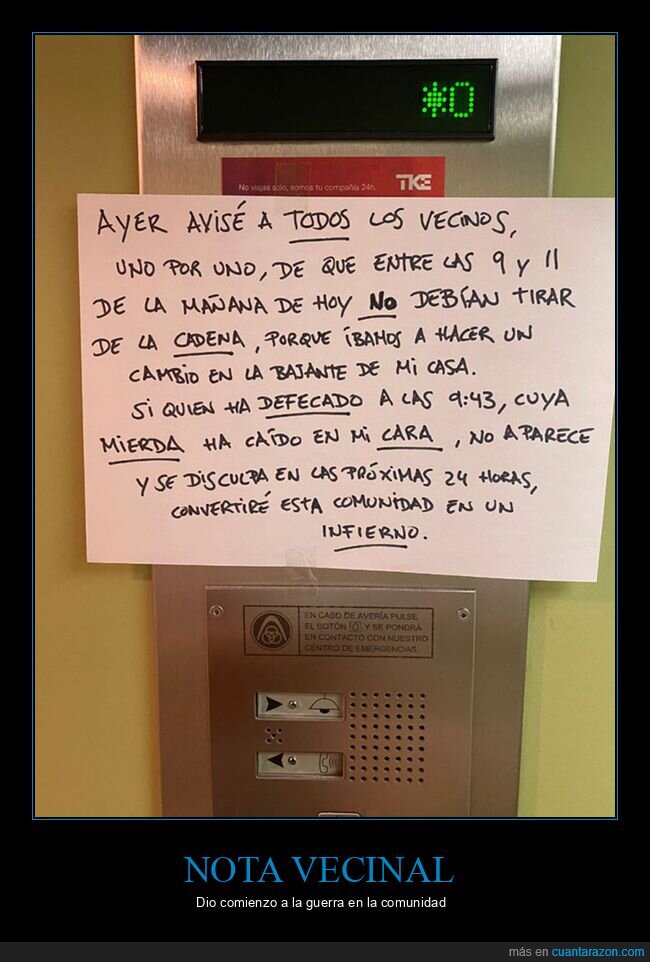 *0
No viajas solo, somos tu compañía 24h.
TKE
AYER AVISÉ A TODOS LOS VECINOS,
UNO POR UNO, DE QUE ENTRE LAS 9 y 11
DE LA MAÑANA DE HOY NO DEBÍAN TIRAR
DE LA CADENA, PORQUE ÍBAMOS A HACER UN
CAMBIO EN LA BAJANTE DE MI CASA.
SI QUIEN HA DEFECADO A LAS 9:43, CUYA
MIERDA HA CAÍDO EN MI CARA, NO APARECE
Y SE DISCULPA EN LAS PRÓXIMAS 24 HORAS,
CONVERTIRÉ ESTA COMUNIDAD EN UN
INFIERNO.
EN CASO DE AVERÍA PULSE
EL BOTÓN Y SE PONDRÁ
EN CONTACTO CON NUESTRO
CENTRO DE EMERGENCIAS.
NOTA VECINAL
Dio comienzo a la guerra en la comunidad
más en cuantarazon.com